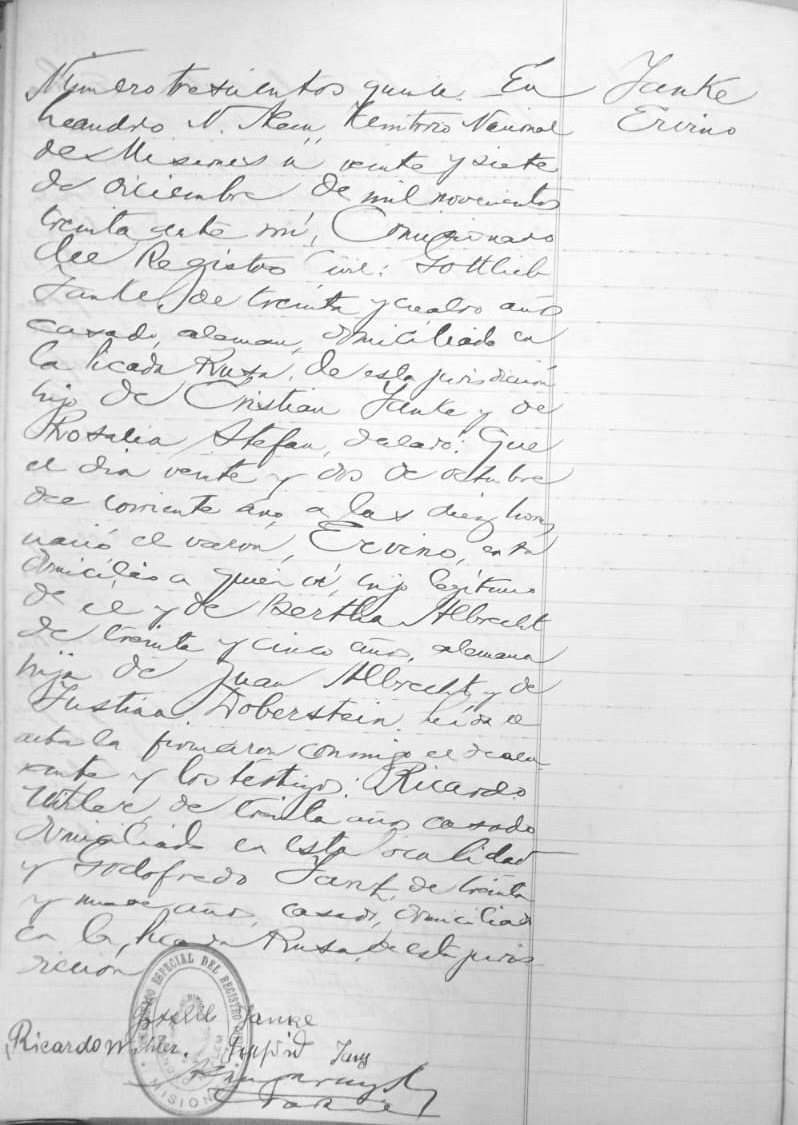 Número trescientos quince. En
Leandro N. Alem, Territorio Nacional
de Misiones a veinte y siete
de diciembre de mil novecientos
treinta ante mí, Comisionado
del Registro Civil: Gottlieb
Janke, de treinta y cuatro años
casado, aleman, domiciliado en
la Picada Rusa, de esta jurisdicción
hijo de Cristian Janke y de
Rosalia Stefan, declaró: Que
el dia veinte y dos de octubre
del corriente año a las diez horas
nació el varon, Ervino, en su
domicilio a quien vi, hijo legítimo
de él y de Bertha Albrecht
de treinta y cinco años, alemana
hija de Juan Albrecht y de
Justina Doberstein, leida el
acta la firmaron conmigo el decla-
rante y los testigos: Ricardo
de treinta años casado
domiciliado en esta localidad
y Godofredo de treinta
y nueve años, casado, domiciliado
en la Picada Rusa, de esta juris
diccion
Janke
Ricardo
Janke
Ervino
ESPECIAL DEL REGISTRO
MISIONES